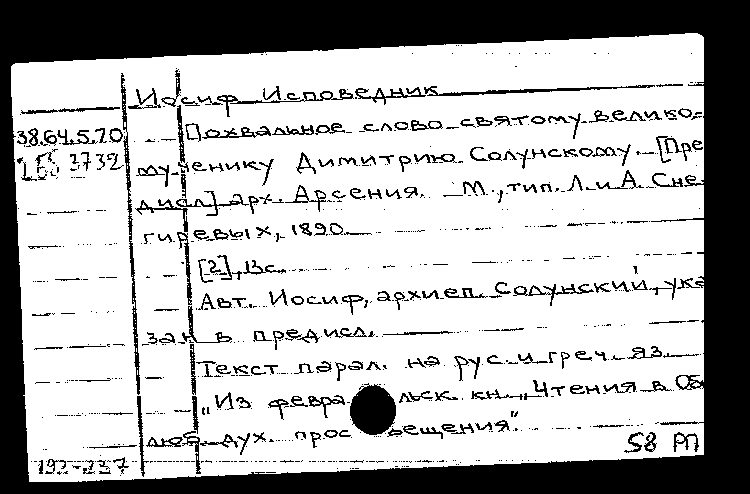 Иосиф Исповедник
38.64.5.70 Похвальное слово святому велико-
3732 мученику Димитрию Солунскому. [Пре
дисл] арх. Арсения. М., тип. Л. и А. Сне-
гиревых, 1890.
[2], 13с.
Авт. Иосиф, архиеп. Солунский, ука
зан в предисл.
Текст парал. на рус. и греч. яз.
„Из февральск. кн. „Чтения в Об
люб. дух. просвещения".
58 РП
192-237